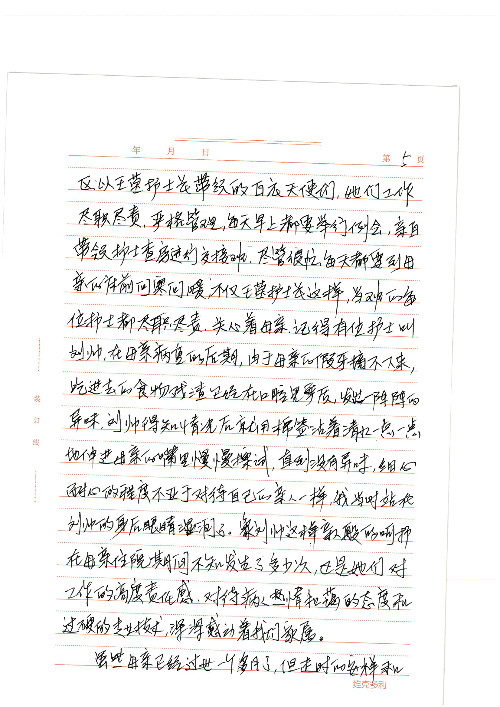 年 月 日
第 5 頁
区以王莹护士长带领的白衣天使们，她们工作
尽职尽责，严格管理，每天早上都要举行例会，亲自
带领护士查房进行交接班，尽管很忙，每天都要到母
亲的床前问寒问暖，不仅王莹护士长这样，当班的每
位护士都尽职尽责，关心着母亲，记得有位护士叫
刘帅，在母亲病重的后期，由于母亲的假牙摘不下来，
吃进去的食物残渣已经在口腔里，发出一阵阵的
异味，刘帅得知情况后就用棉签沾着清水一点一点
地伸进母亲的嘴里慢慢擦拭，直到没有异味，细心
耐心的程度不亚于对待自己的亲人一样，我当时站在
刘帅的身后眼睛湿润了。象刘帅这样亲人般的呵护
在母亲住院期间不知发生了多少次，也是她们对
工作的高度责任感，对待病人热情和蔼的态度和
过硬的专业技术，深深感动着我们家属。
虽然母亲已经过世一个多月了，但走时的安祥和
装订线